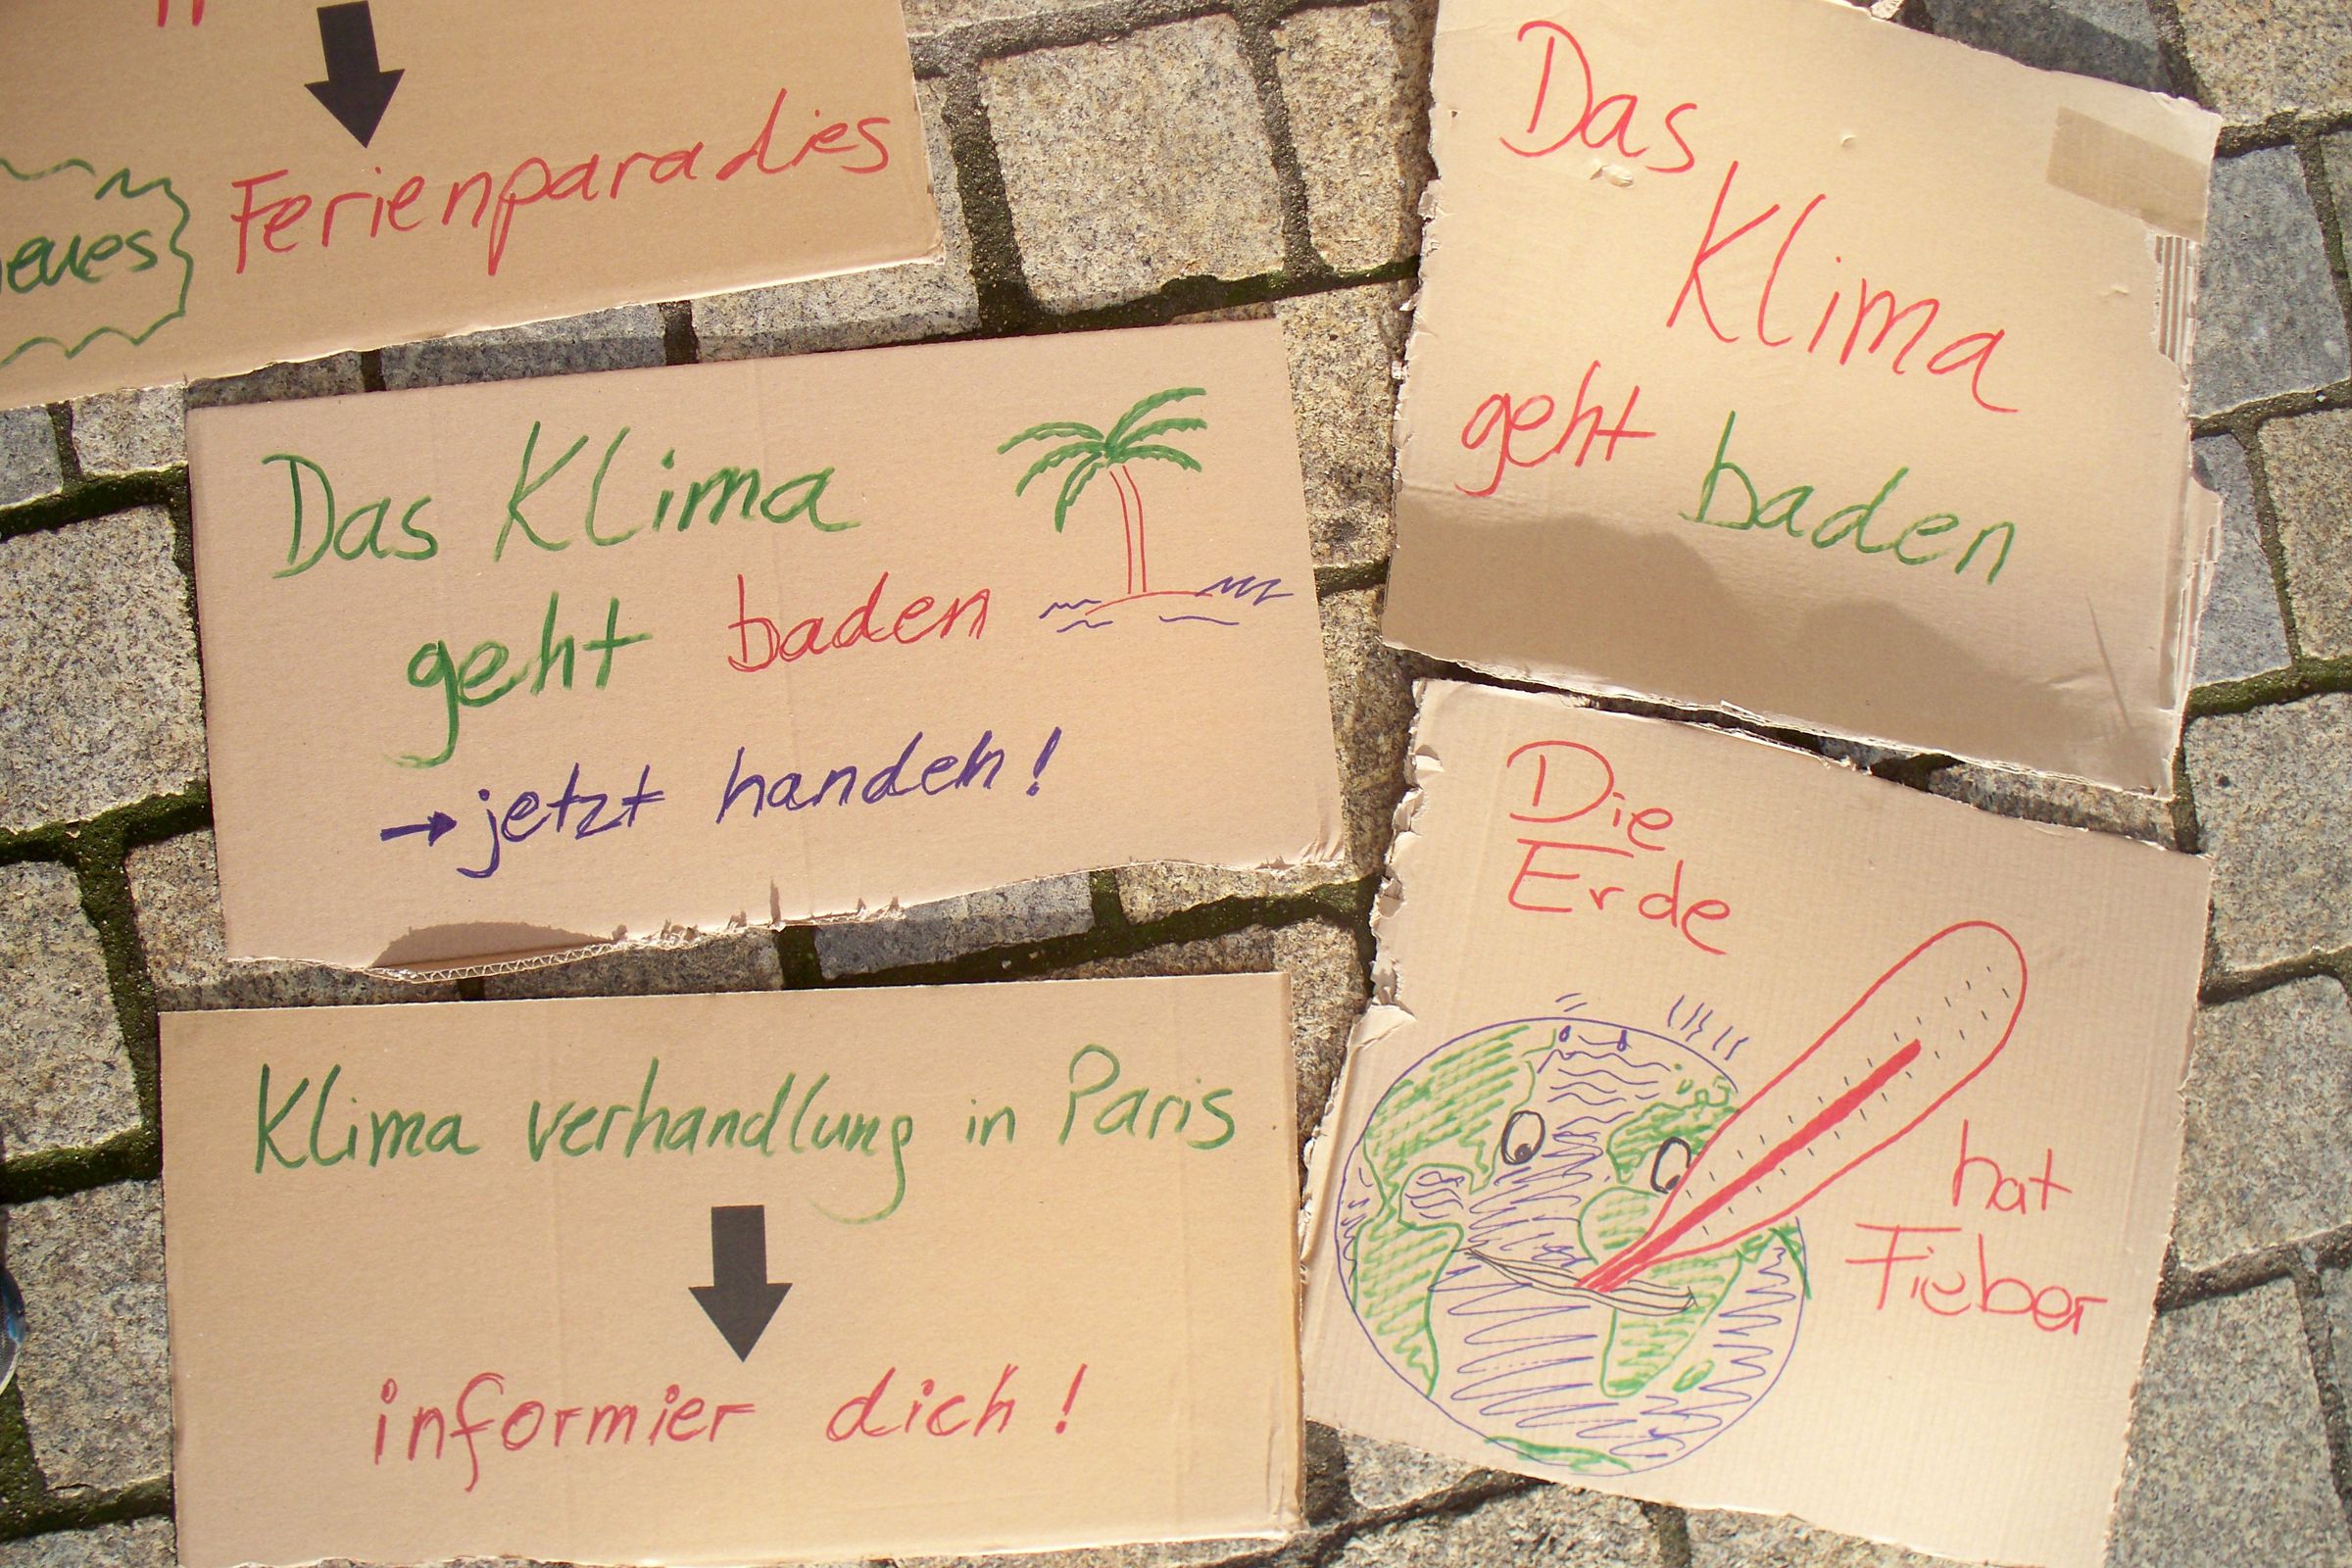 Ferienparadies
Das Klima
geht baden
→ jetzt handeln!
Klima verhandlung in Paris
informier dich!
Das
Klima
geht baden
Die
Erde
hat
Fieber